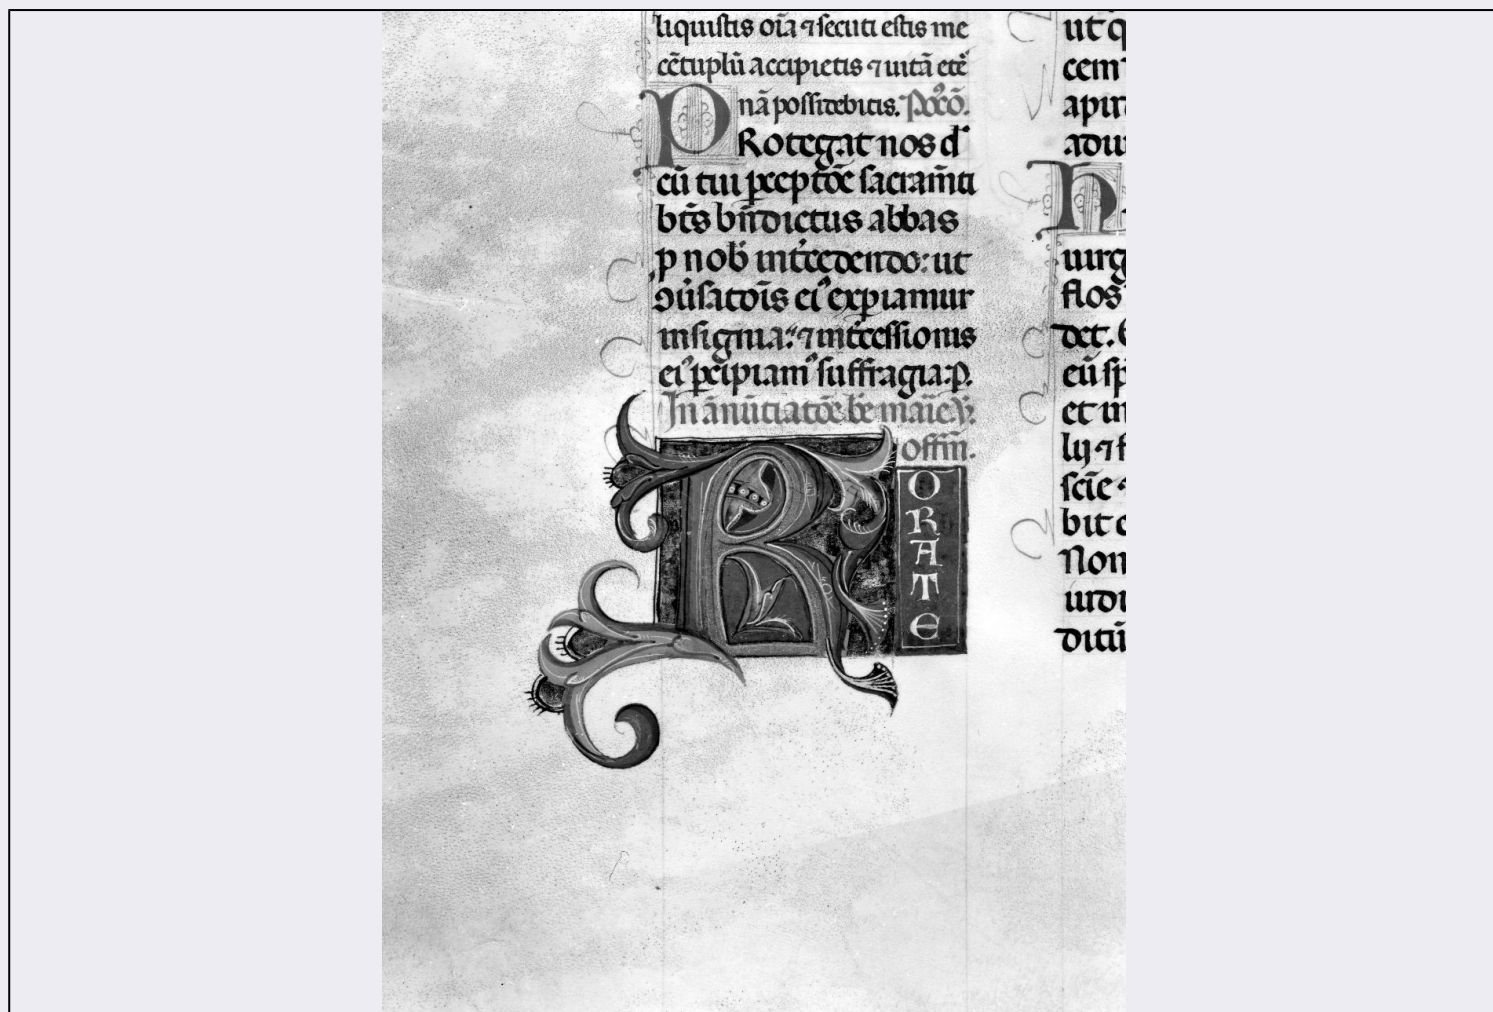 liquistis oīa ⁊ secuti estis me
cētuplū accipietis ⁊ uitā etē
nā possidebitis. Pꝰcō.
PRotegat nos dꝰ
cū tui pceptōe sacram̄ti
bt̄s bn̄dictus abbas
p nob̄ int̄cedendo: ut
ꝯūsatōis eiꝰ expiamur
insignia: ⁊ int̄cessionis
eiꝰ pcipiamꝰ suffragia. P.
In ānūtiatōe bē marīe ỽ.
offm̄.
RORATE
ut q
cem
apir
adu
uirg
flos
det.
eū sp
et in
lij ⁊ f
scīe ⁊
bit
Non
uidi
dicū